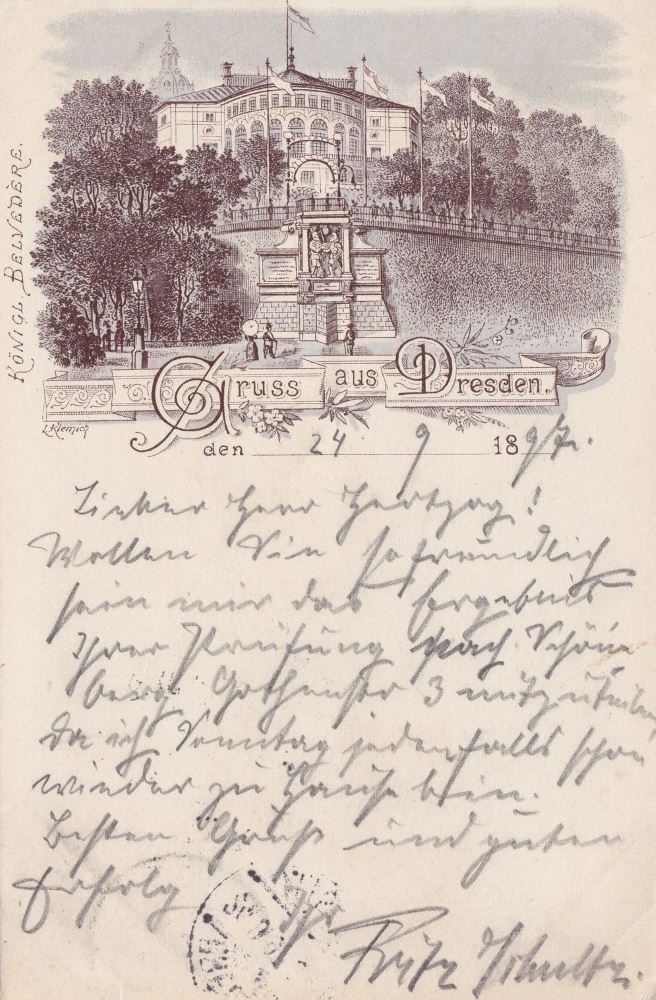 KÖNIGL. BELVEDÈRE.
L. Klemich
Gruss aus Dresden.
den 24 9 1897.
Lieber Herr Hertzog!
Wollen Sie so freundlich
sein mir das Ergebnis
Ihrer Prüfung nach Schöne
berg Gothenstr 3 mitzuteilen
da ich Sonntag jedenfalls schon
wieder zu Hause bin.
Besten Gruß und guten
Erfolg
Ihr
Fritz Schultz.